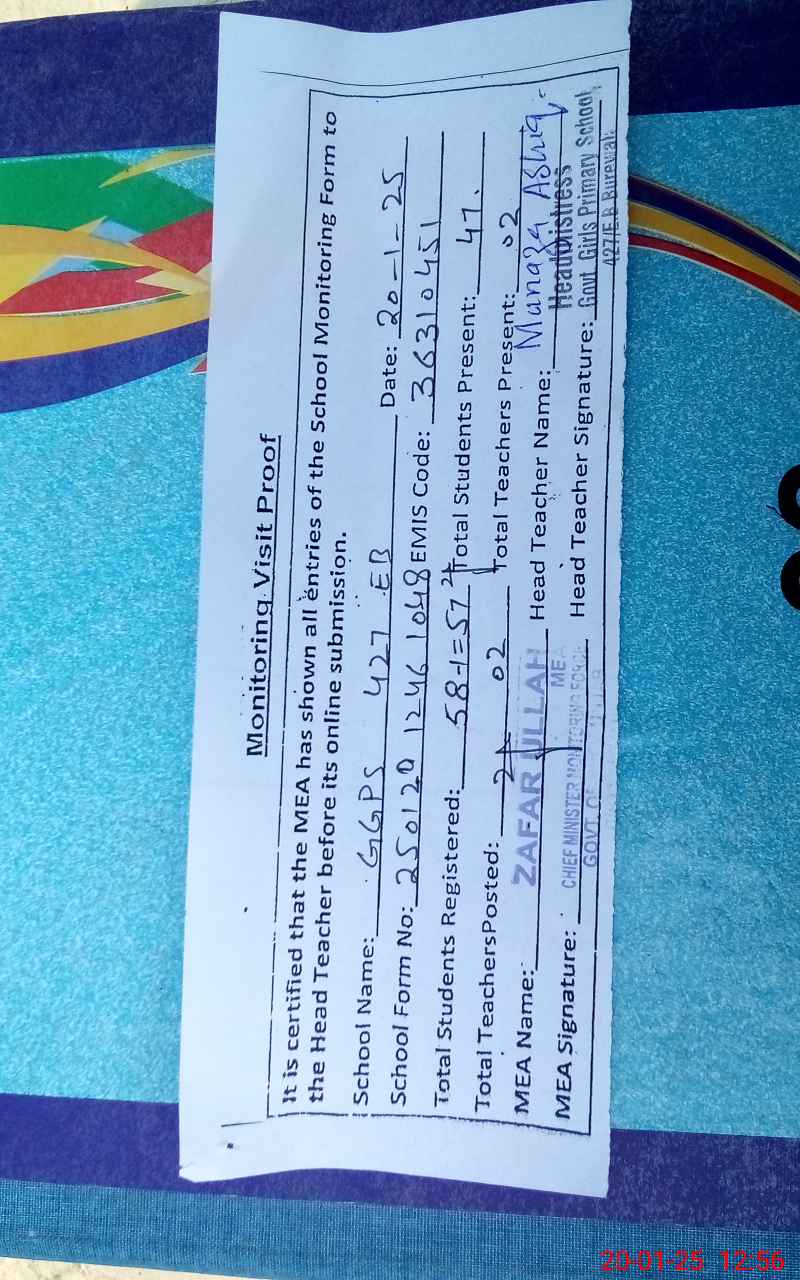 Monitoring Visit Proof
It is certified that the MEA has shown all entries of the School Monitoring Form to
the Head Teacher before its online submission.
School Name: GGPS 427 EB Date: 20-1-25
School Form No: 250120 1246 1048 EMIS Code: 36310451
Total Students Registered: 58-1=57 Total Students Present: 47.
Total TeachersPosted: 02 Total Teachers Present: 02
MEA Name: ZAFAR ULLAH Head Teacher Name: Manaza Ashiq
MEA
Headmistress
MEA Signature: CHIEF MINISTER MONITORING FORCE Head Teacher Signature: Govt Girls Primary School
GOVT. OF
427/E.B Burewala
20-01-25 12:56